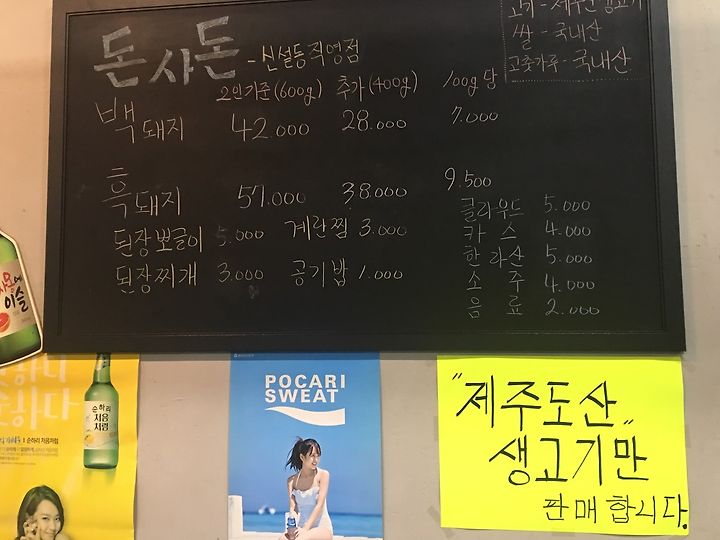 돈사돈 - 신설동직영점
고기 - 제주산 생고기
쌀 - 국내산
고춧가루 - 국내산
2인기준(600g) 추가(400g) 100g당
백돼지 42.000 28.000 7.000
흑돼지 57.000 38.000 9.500
된장뽀글이 5.000 계란찜 3.000
된장찌개 3.000 공기밥 1.000
클라우드 5.000
카스 4.000
한라산 5.000
소주 4.000
음료 2.000
이슬
순하리
처음
처럼
순하리 처음처럼
POCARI
SWEAT
"제주도산"
생고기만
판매합니다.